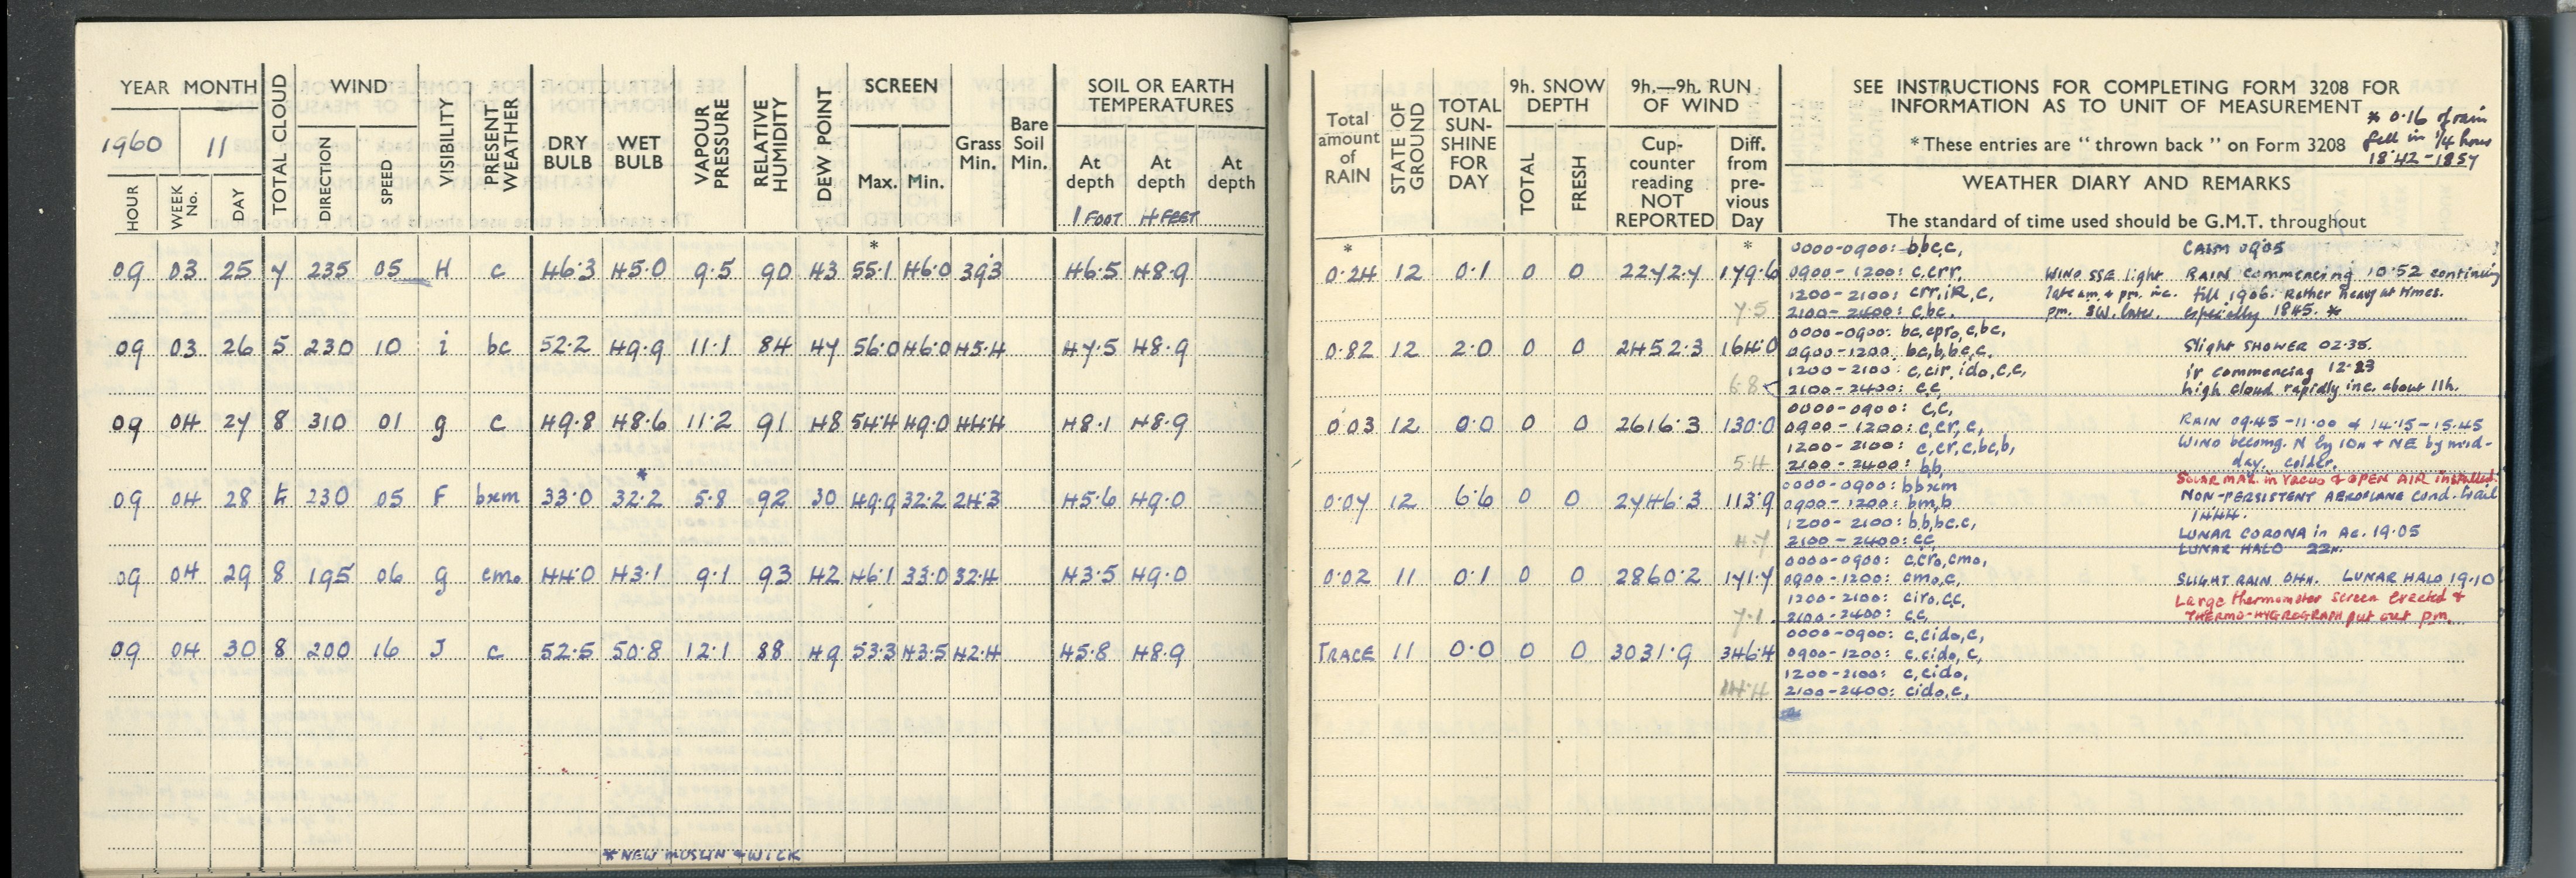 YEAR MONTH
1960 11
HOUR WEEK No. DAY TOTAL CLOUD
WIND
DIRECTION SPEED
VISIBILITY
PRESENT WEATHER
DRY BULB
WET BULB
VAPOUR PRESSURE
RELATIVE HUMIDITY
DEW POINT
SCREEN
Max. Min.
Grass Min.
Bare Soil Min.
SOIL OR EARTH TEMPERATURES
At depth At depth At depth
1 FOOT 4 FEET
*
09 03 25 7 235 05 H c 46.3 45.0 9.5 90 43 55.1 46.0 39.3 46.5 48.9
09 03 26 5 230 10 i bc 52.2 49.9 11.1 84 47 56.0 46.0 45.4 47.5 48.9
09 04 27 8 310 01 g c 49.8 48.6 11.2 91 48 54.4 49.0 44.4 48.1 48.9
*
09 04 28 230 05 F bxm 33.0 32.2 5.8 92 30 49.9 32.2 24.3 45.6 49.0
09 04 29 8 195 06 g cmo 44.0 43.1 9.1 93 42 46.1 33.0 32.4 43.5 49.0
09 04 30 8 200 16 J c 52.5 50.8 12.1 88 49 53.3 43.5 42.4 45.8 48.9
* NEW MUSLIN & WICK
Total amount of RAIN
STATE OF GROUND
TOTAL SUN-SHINE FOR DAY
9h. SNOW DEPTH
TOTAL FRESH
9h.—9h. RUN OF WIND
Cup-counter reading NOT REPORTED
Diff. from pre-vious Day
SEE INSTRUCTIONS FOR COMPLETING FORM 3208 FOR
INFORMATION AS TO UNIT OF MEASUREMENT
* These entries are "thrown back" on Form 3208
* 0.16 of rain
fell in 1/4 hour
18.42-1857
WEATHER DIARY AND REMARKS
The standard of time used should be G.M.T. throughout
* *
0.24 12 0.1 0 0 2272.7 179.6
7.5
0000-0900: bbc,c, CALM 0905
0900-1200: c,crr. WIND SSE light RAIN commencing 10.52 continuing
1200-2100: crr,iR,c, late am. & pm. inc. till 1906. Rather heavy at times.
2100-2400: c,bc. pm. SW. later. especially 1845. *
0.82 12 2.0 0 0 2452.3 164.0
6.8
0000-0900: bc,cpro,c,bc, Slight SHOWER 02.35.
0900-1200: bc,b,bc,c.
1200-2100: c,cir,ido,c,c, ir commencing 12.23
2100-2400: c,c, high cloud rapidly inc. about 11h.
0.03 12 0.0 0 0 2616.3 130.0
5.4
0000-0900: c,c,
0900-1200: c,cr,c, RAIN 09.45-11.00 & 14.15-15.45
1200-2100: c,cr,c,bc,b, WIND becomg. N by 10h & NE by mid-
2100-2400: b,b, day. colder.
0.07 12 6.6 0 0 2746.3 113.9
4.7
SOLAR MAX. in Vacuo & OPEN AIR installed.
0000-0900: bbxm NON-PERSISTENT AEROPLANE cond. trail
0900-1200: bm,b 1444.
1200-2100: b,b,bc,c, LUNAR CORONA in Ac. 19.05
2100-2400: c,c, LUNAR HALO 22h.
0.02 11 0.1 0 0 2860.2 171.7
7.1
0000-0900: c,cro,cmo,
0900-1200: cmo,c, SLIGHT RAIN 04h. LUNAR HALO 19.10
1200-2100: ciro,c,c, Large thermometer screen erected &
2100-2400: c,c, THERMO-HYGROGRAPH put out pm.
TRACE 11 0.0 0 0 3031.9 346.4
14.4
0000-0900: c,cido,c,
0900-1200: c,cido,c,
1200-2100: c,cido,
2100-2400: cido,c,